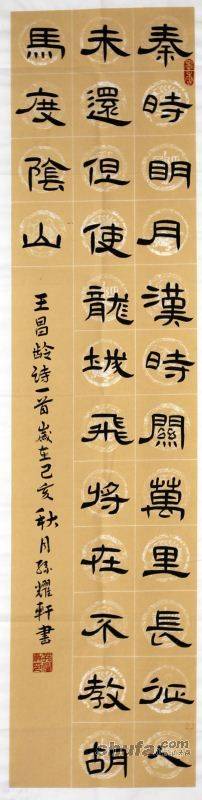 秦時明月漢時關萬里長征人
未還但使龍城飛將在不教胡
馬度陰山
王昌龄诗一首歲在己亥秋月孫耀軒書